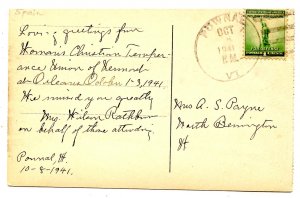 Loving greetings from
Woman's Christian Temper-
ance Union of Vermont
at Orleans October 1-3, 1941.
We missed you greatly
Mrs. Wilson Rathbun
on behalf of those attending
Pownal, Vt.
10-8-1941.
POWNAL
OCT
1941
P.M.
VT.
Mrs A. S. Payne
North Bennington
Vt